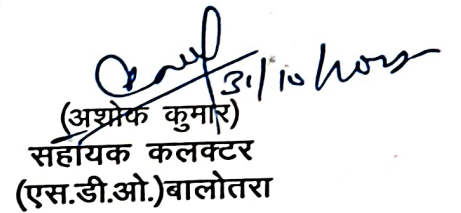 31/10
(अशोक कुमार)
सहायक कलक्टर
(एस.डी.ओ.)बालोतरा